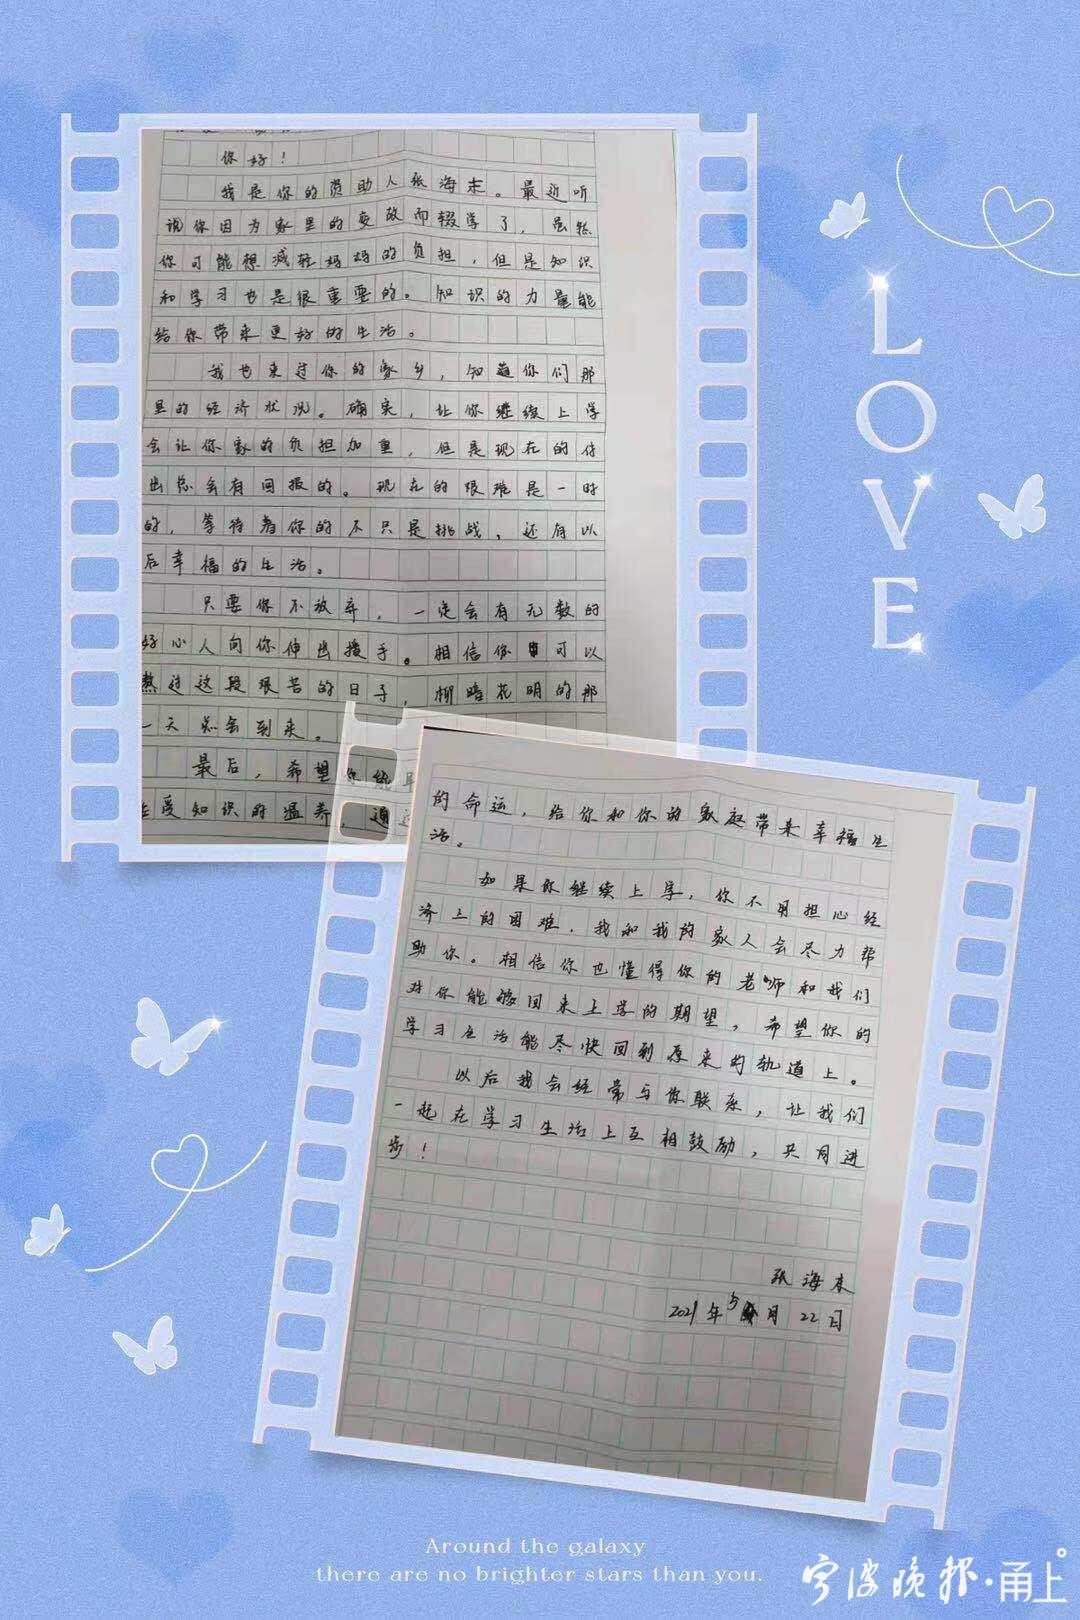 你好！
我是你的资助人张海未。最近听
说你因为家里的变故而辍学了，虽然
你可能想减轻妈妈的负担，但是知识
和学习也是很重要的。知识的力量能
给你带来更好的生活。
我也来过你的家乡，知道你们那
里的经济状况。确实，让你继续上学
会让你家的负担加重，但是现在的付
出总会有回报的。现在的艰难是一时
的，等待着你的不只是挑战，还有以
后幸福的生活。
只要你不放弃，一定会有无数的
好心人向你伸出援手。相信你可以
熬过这段艰苦的日子，柳暗花明的那
一天总会到来。
最后，希望你能
受知识的滋养，通过
的命运，给你和你的家庭带来幸福生
活。
如果你继续上学，你不用担心经
济上的困难，我和我的家人会尽力帮
助你。相信你也懂得你的老师和我们
对你能够回来上学的期望，希望你的
学习生活能尽快回到原来的轨道上。
以后我会经常与你联系，让我们
一起在学习生活上互相鼓励，共同进
步！
张海未
2021年5月22日
LOVE
Around the galaxy
there are no brighter stars than you.
宁波晚报·甬上